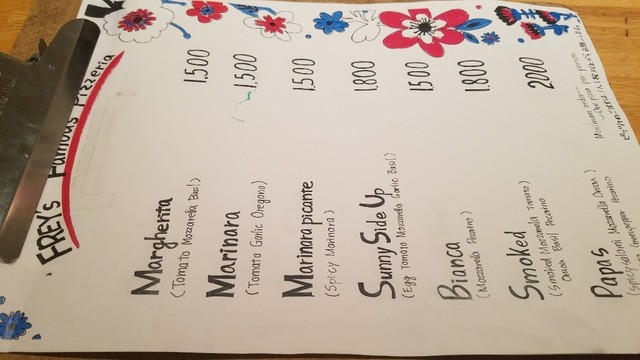 FREY's Famous Pizzeria
Margherita 1.500
(Tomato Mozzarella Basil)
Marinara 1,500
(Tomato Garlic Oregano)
Marinara picante 1.500
(Spicy Marinara)
Sunny Side Up 1.800
(Egg Tomato Mozzarella Garlic Basil)
Bianca 1500
(Mozzarella Pecorino)
1.800
Smoked 2000
(Smoked Mozzarella Tomato
Onion Basil Pecorino)
Papas
(Spicy salami Mozzarella Onion
Pecorino
Minimum order
One pizza per person